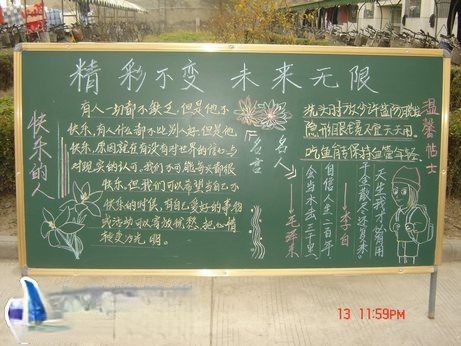 精彩不变 未来无限
快乐的人
有人一切都不缺乏,但是他不
快乐,有人什么都不比别人好,但是他
快乐,原因就在有没有对世界的信心与
对现实的认可,我们不可能每天都很
快乐,但我们可以希望当自己不
快乐的时候,有自己爱好的事物
或活动可以有放忧愁,把心情
变为光明。
名人
名言
洗头时放少许盐防脱发
隐形眼镜不宜天天用
吃鱼有助保持血管年轻
温馨帖士
天生我才必有用
千金散尽还复来
李白
自信人生二百年
会当水击三千里
毛泽东
13 11:59PM